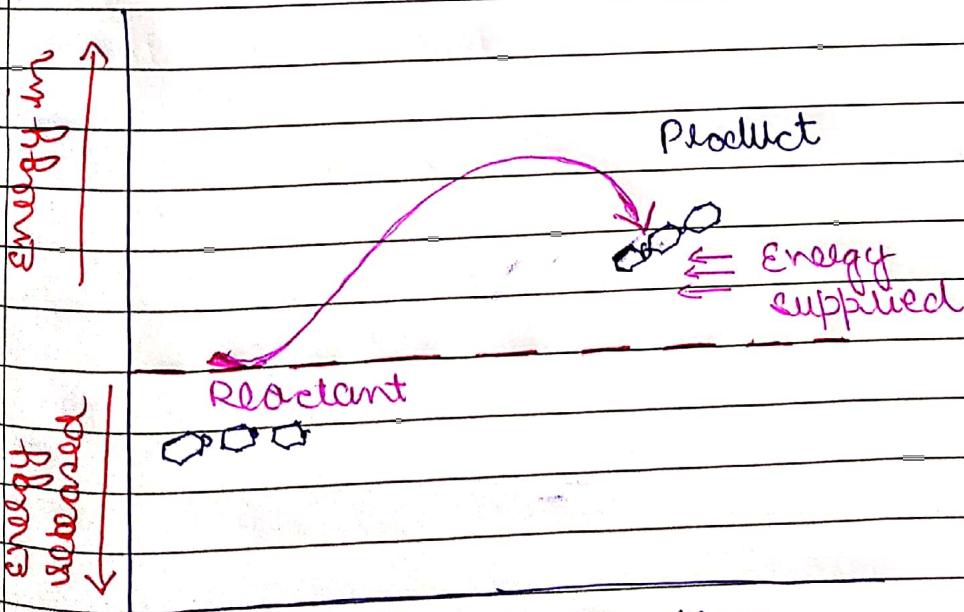 Energy in
Product
Energy
supplied
Reactant
Energy
released